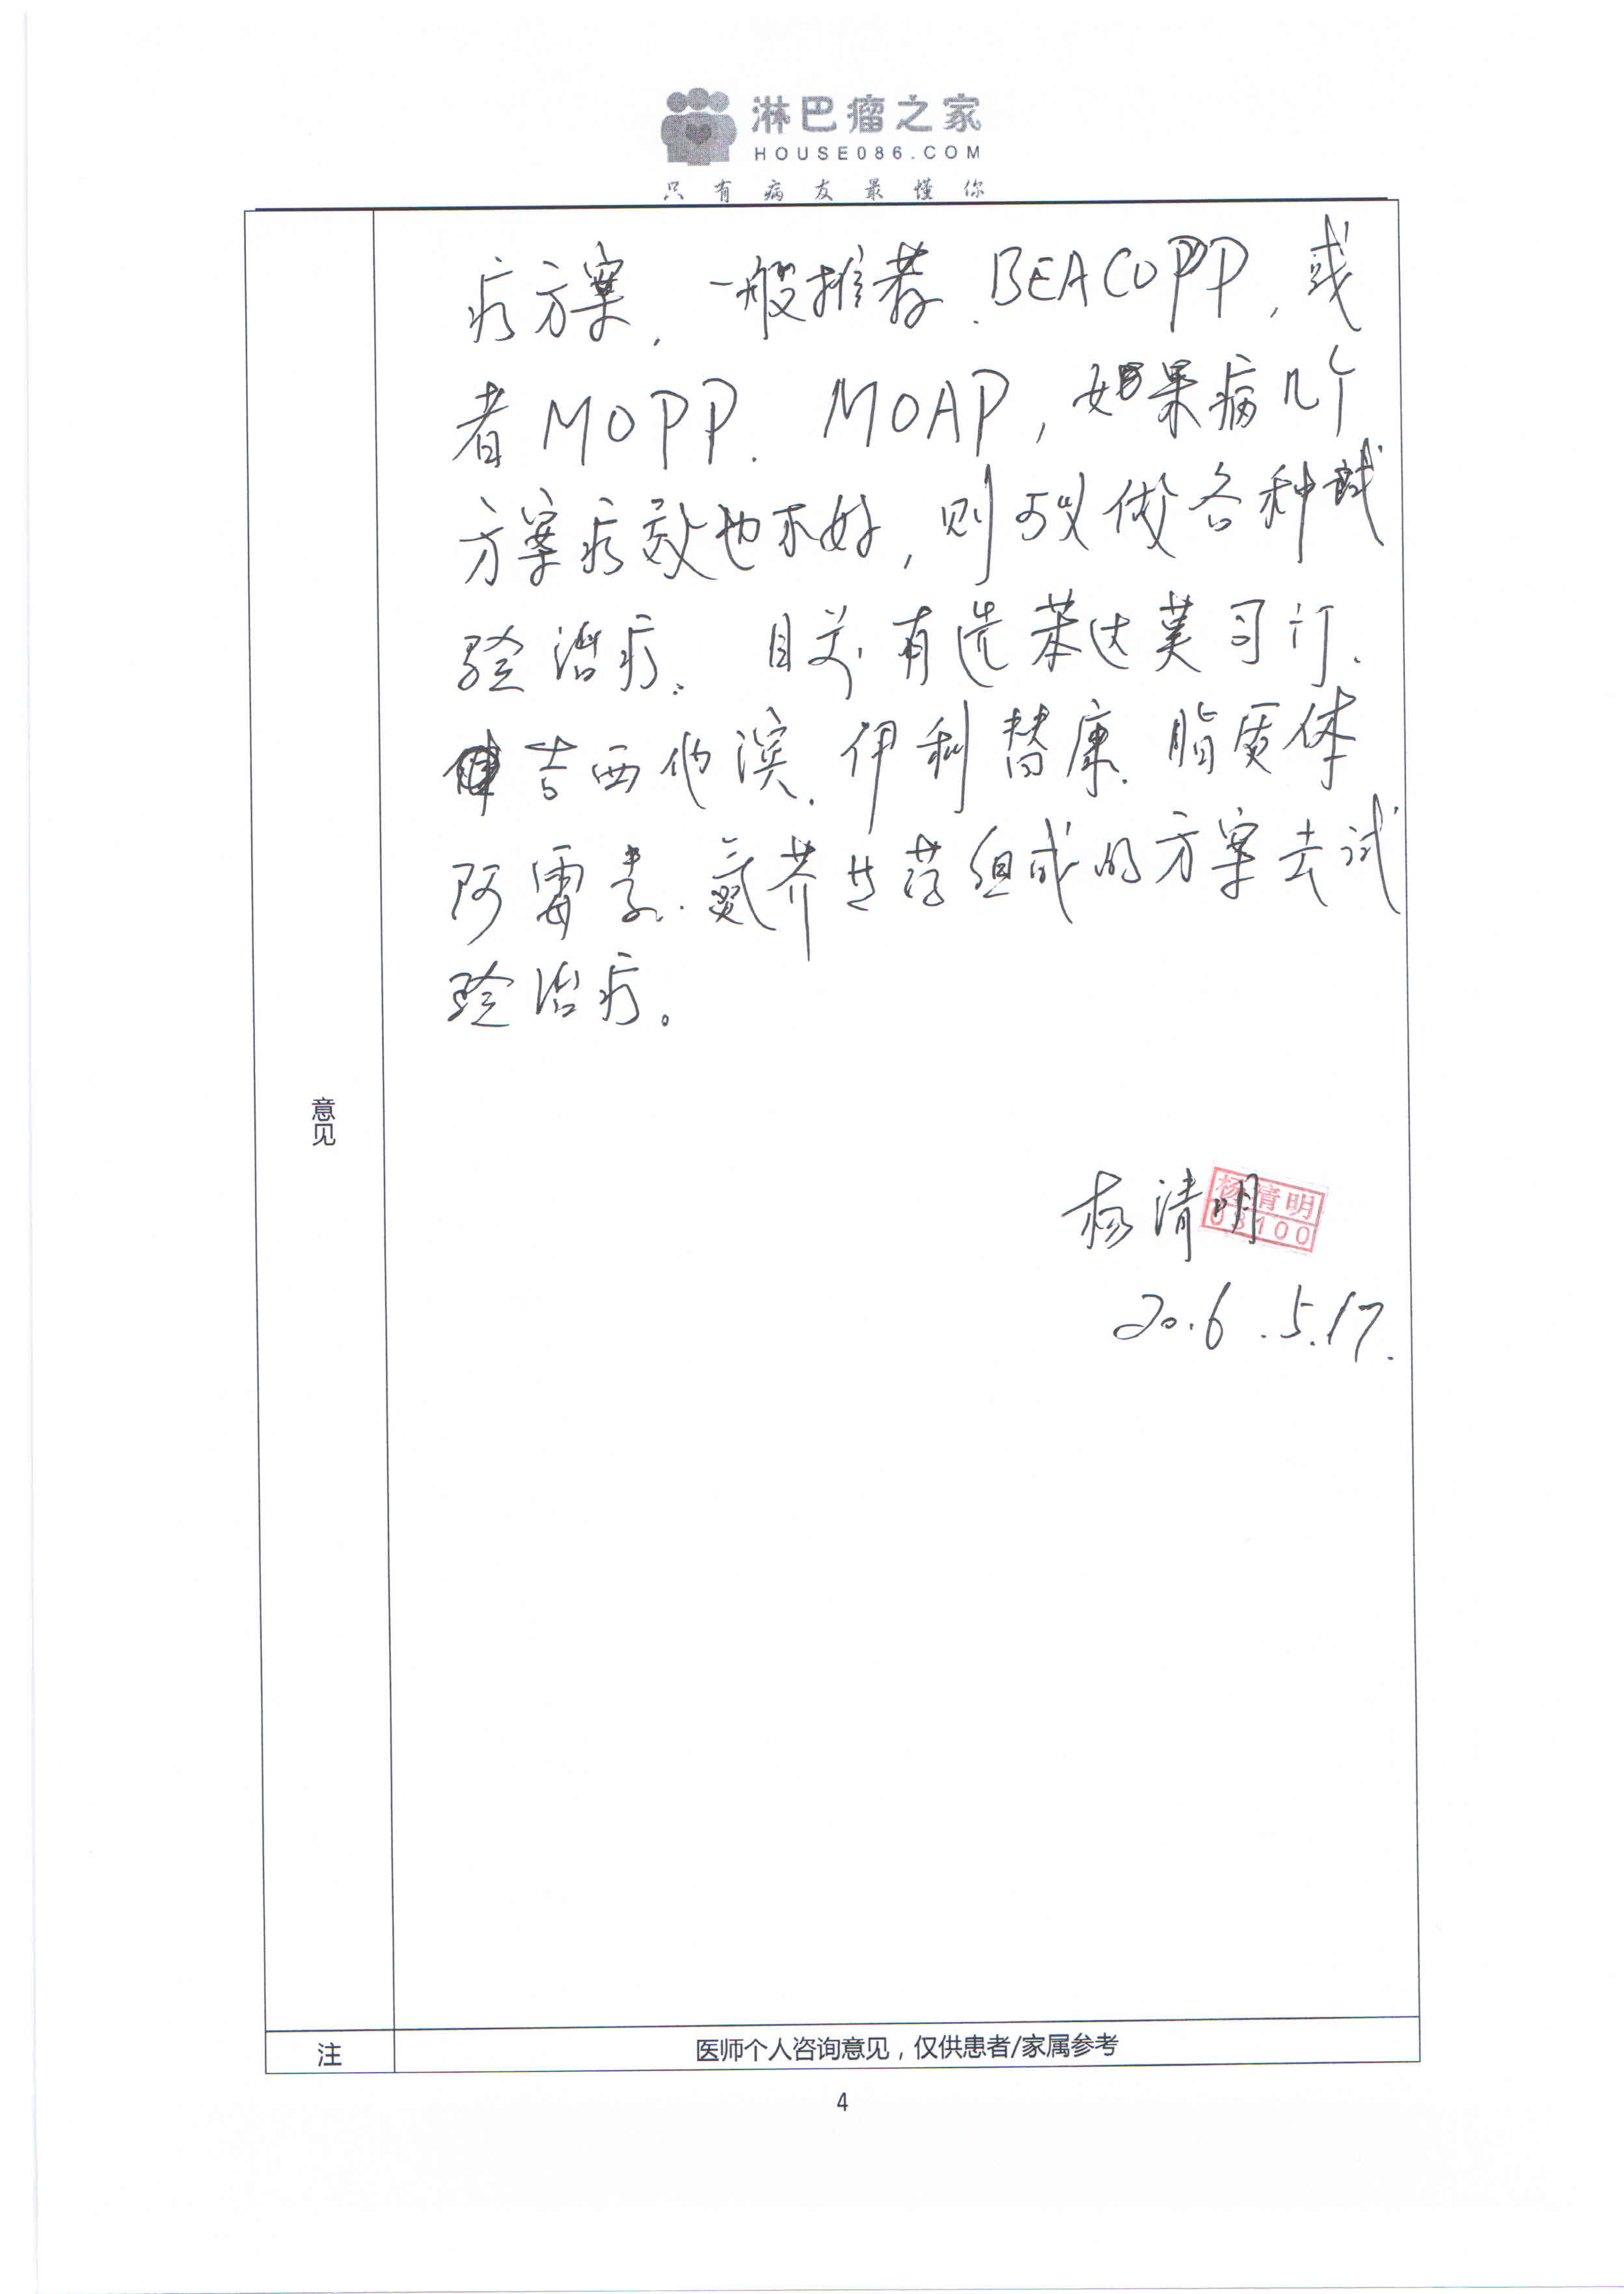 淋巴瘤之家
HOUSE086.COM
只有病友最懂你
疗方案,一般推荐.BEACOPP,或
者MOPP.MOAP,如果病几个
方案疗效也不好,则可以做各种试
验治疗.目前有选苯达莫司汀.
吉西他滨.伊利替康.脂质体
阿霉素.氮芥 药组成的方案去试
验治疗。
意见
杨清明
杨清明
03100
2016.5.17.
注
医师个人咨询意见,仅供患者/家属参考
4